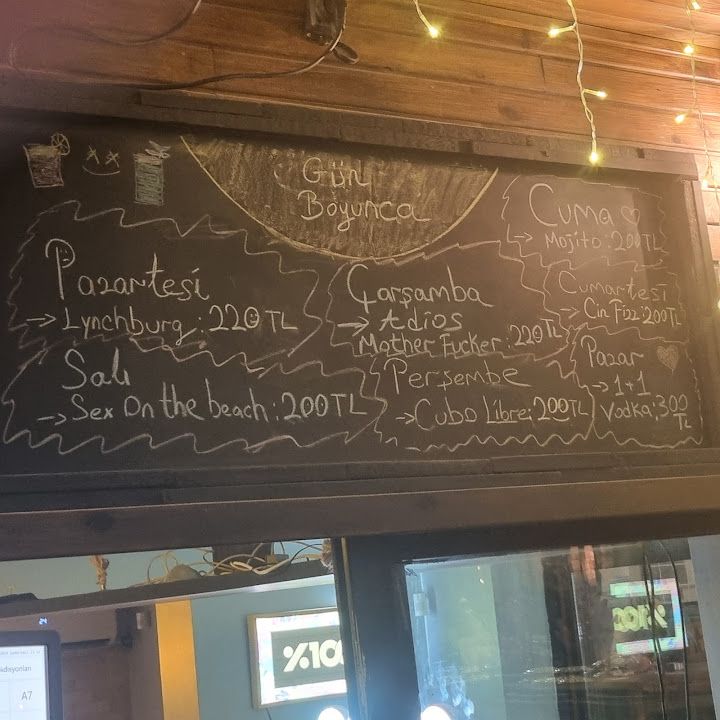 Gün
Boyunca
Pazartesi
→ Lynchburg: 220 TL
Salı
→ Sex On the beach: 200 TL
Çarşamba
→ Adios
Mother Fucker: 220 TL
Perşembe
→ Cubo Libre: 200 TL
Cuma ♡
→ Mojito: 200 TL
Cumartesi
→ Cin Fizz 200 TL
Pazar
→ 1+1
Vodka: 300
TL
%100
A7